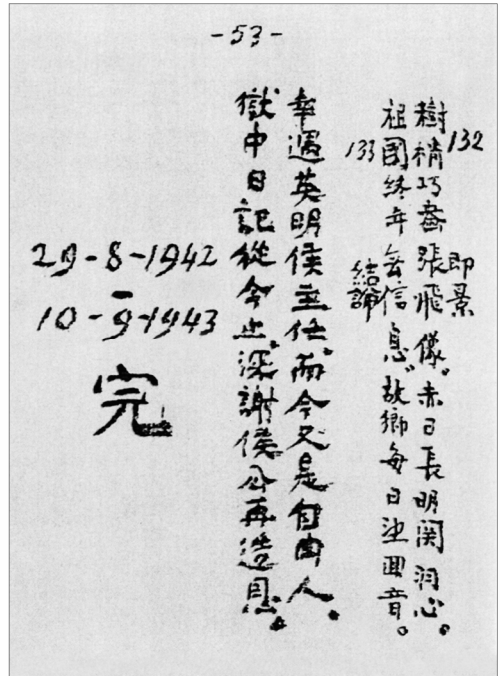 -53-
132
即景
樹梢巧畫張飛像。赤日長明関羽心。
祖國終年無信息。故鄉每日望囬音。
133
結論
幸遇英明侯主任。而今又是自由人。
獄中日記從今止。深謝侯公再造恩。
29-8-1942
-
10-9-1943
完